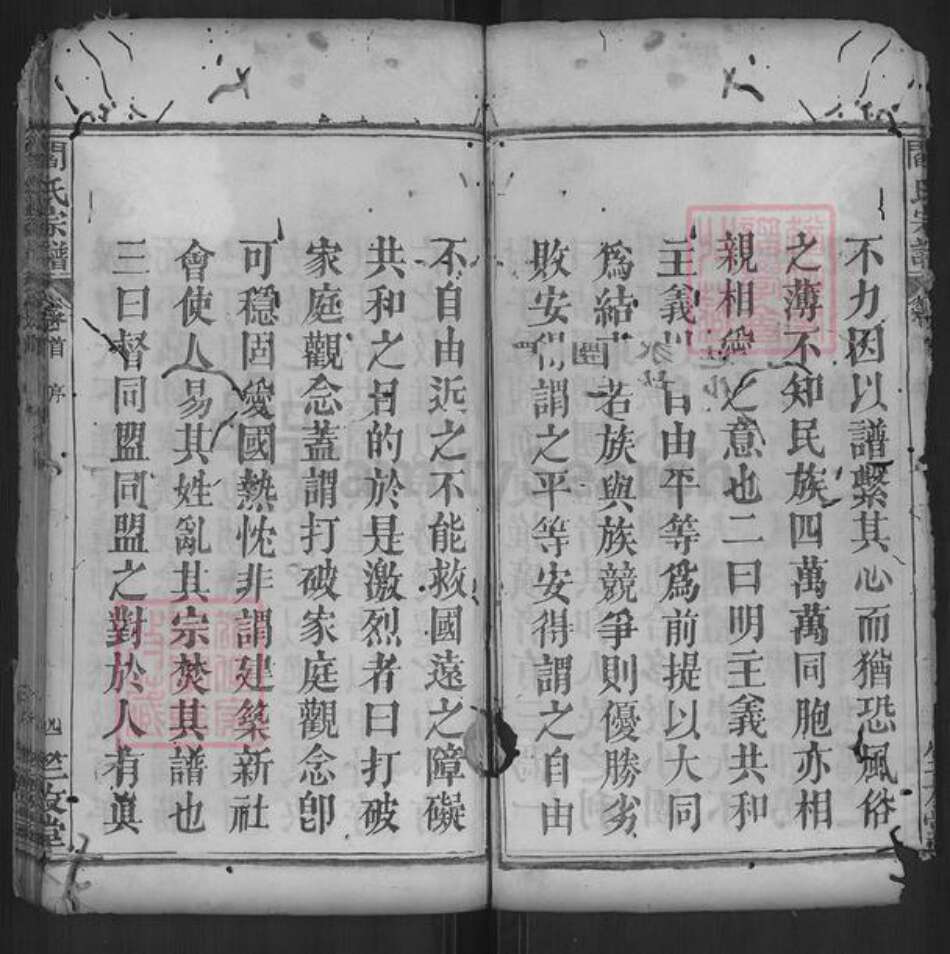 不力因以譜繫其心而猶恐風俗
之薄不知民族四萬萬同胞亦相
親相愛之意也二曰明主義共和
主義以自由平等爲前提以大同
爲結 若族與族競爭則優勝劣
敗安得謂之平等安得謂之自由
不自由近之不能救國遠之障礙
共和之目的於是激烈者曰打破
家庭觀念蓋謂打破家庭觀念卽
可穩固愛國熱忱非謂建築新社
會使人易其姓亂其宗焚其譜也
三曰督同盟同盟之對於人有眞
閻氏宗譜 卷首 序 四